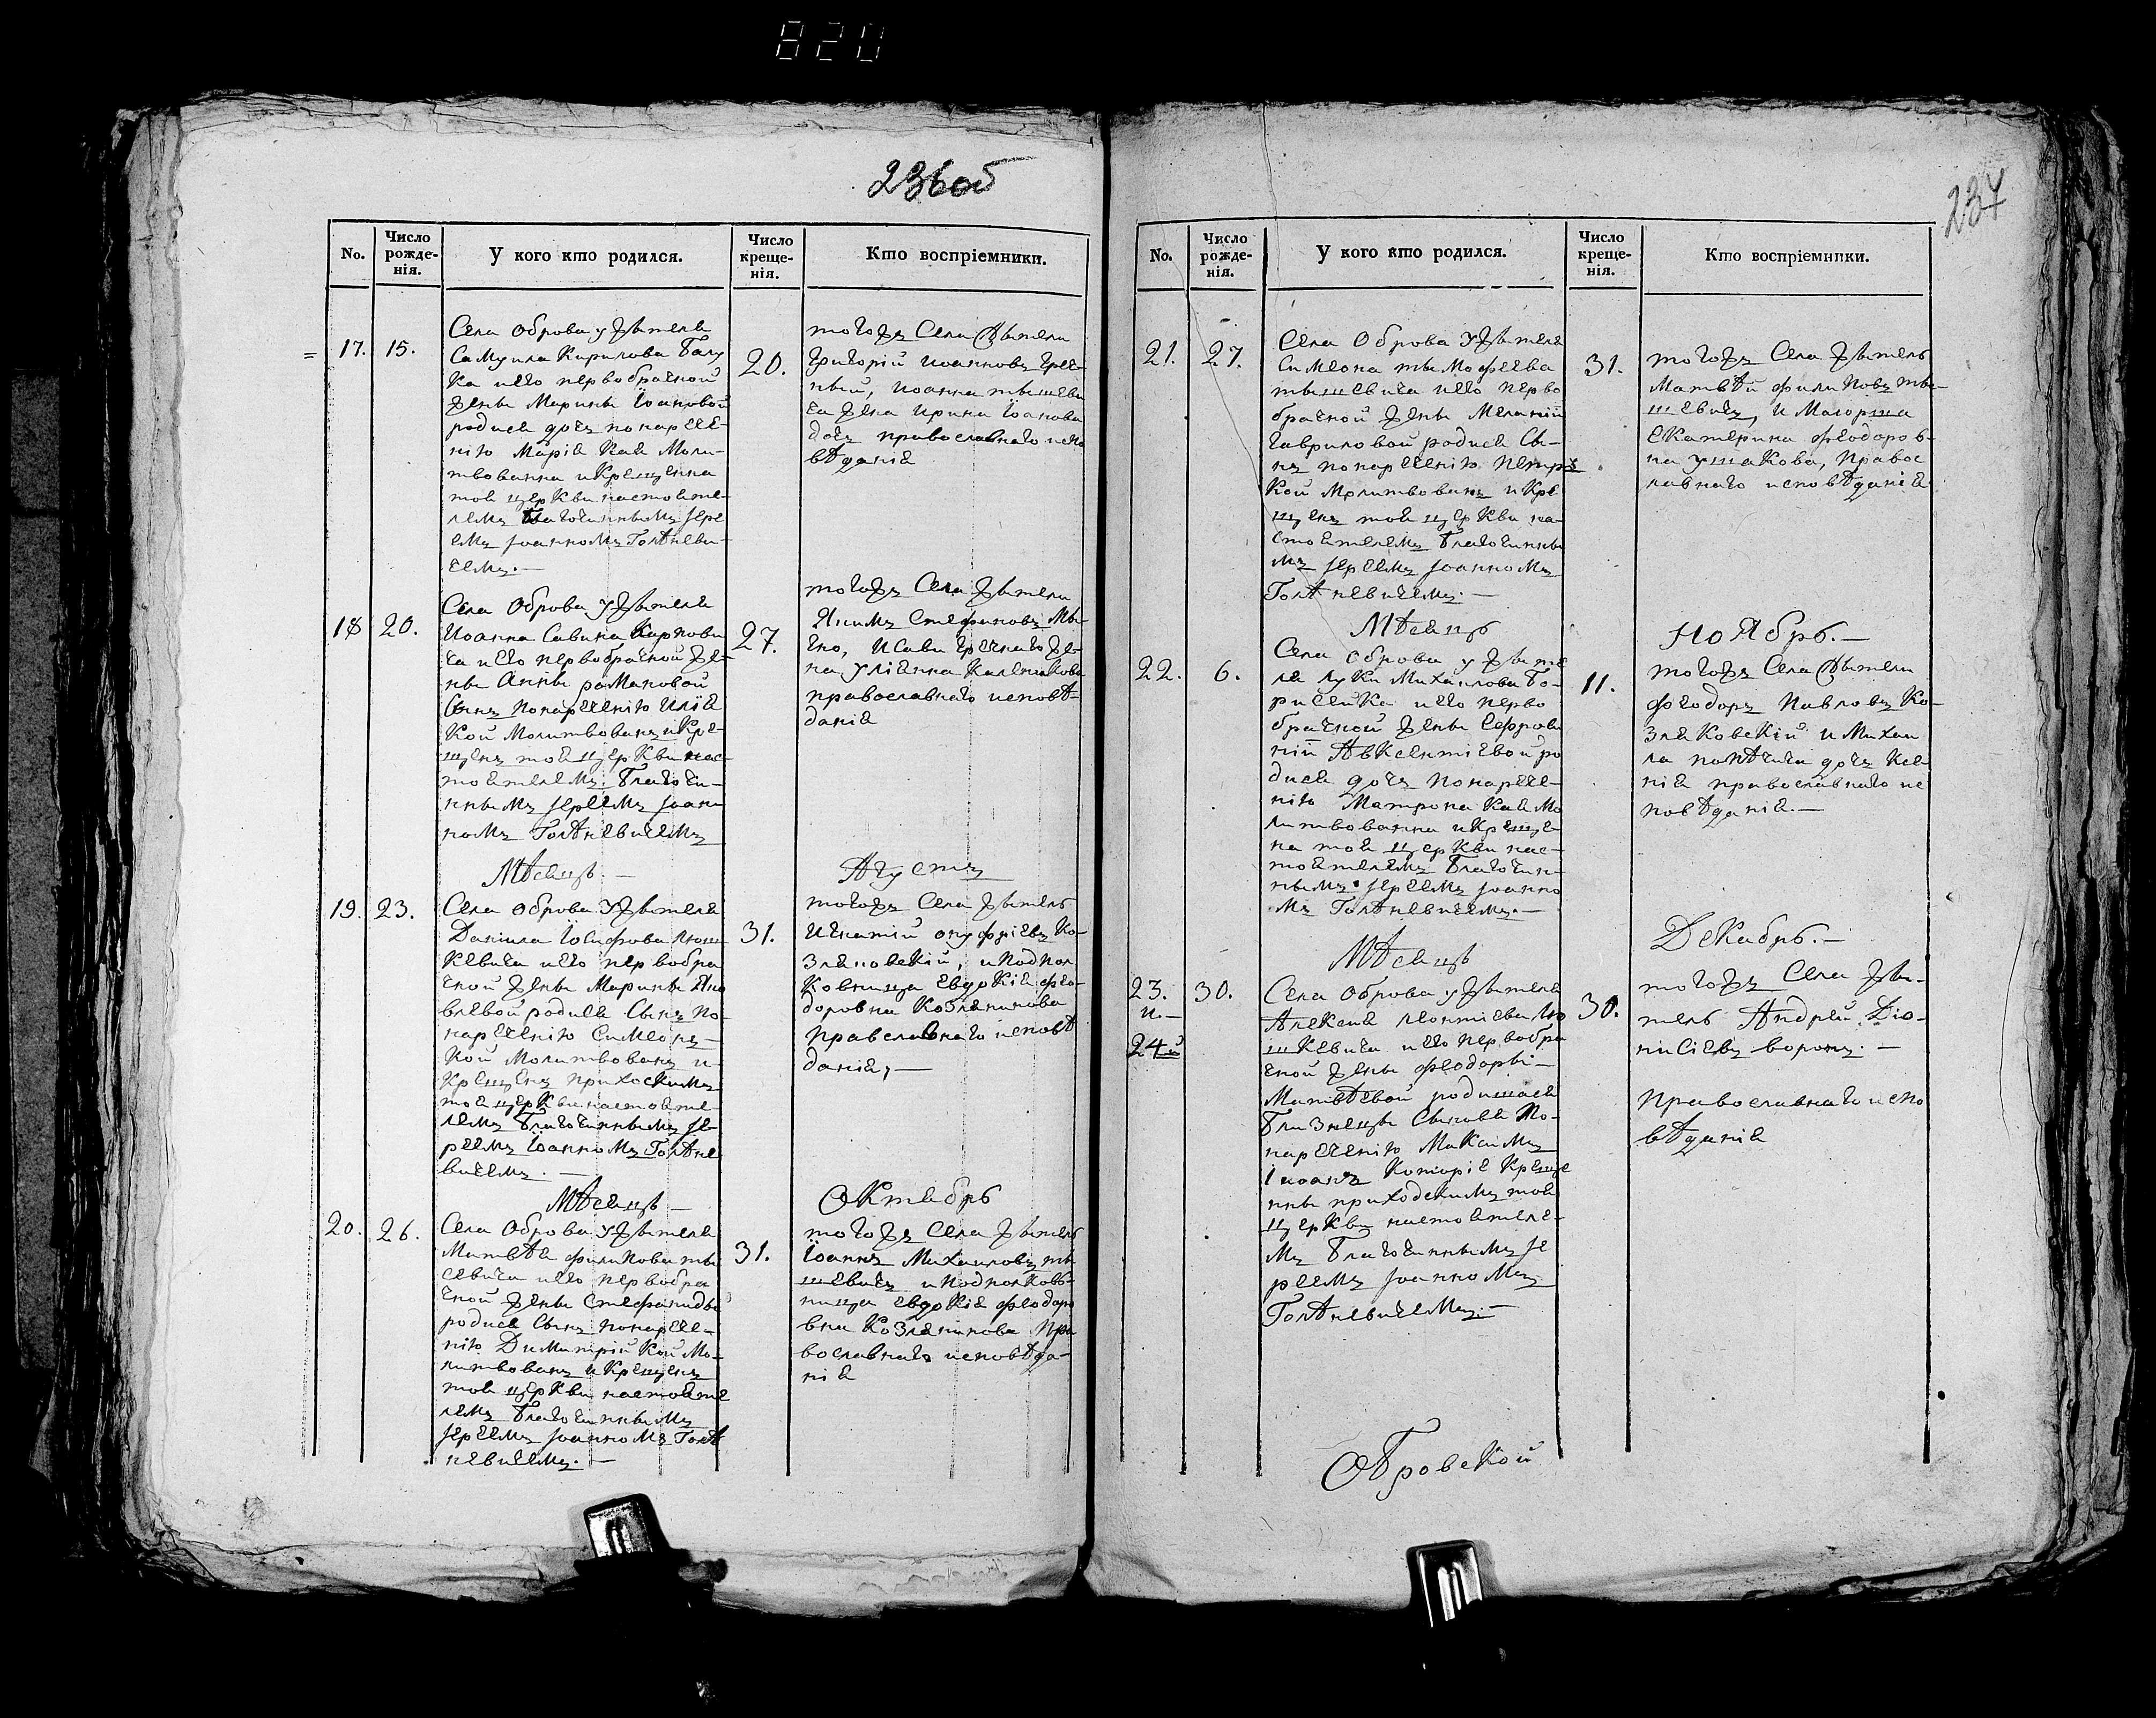 820
236 об
No.
Число рожде-нія.
У кого кто родился.
Число креще-нія.
Кто воспріемники.
17. 15.
Села Оброва у жытеля
Самуила Кирилова Балу
ка и его первобрачной
жены Марины Іоановой
родися дочъ по нарече-
нію Марія кая Моли-
твованна и крещенна
тоя церкви настояте-
лемъ Благочиннымъ Іере
емъ Іоанномъ Голѣневи-
чемъ.—
20.
тогожъ Села жытели
Григорій Иоанновъ Греч-
ный, Иоанна тышеви
ча жена Ирина Іоанова
дочъ православнаго испо
вѣданія
18 20.
Села Оброва у жытеля
Иоанна Савина Карпови
ча и его первобрачной же-
ны Анны романовой
Сынъ по нареченію Илія
кой Молитвованъ и кре-
щенъ тоя церкви нас-
тоятелемъ Благочи-
ннымъ Іереемъ Іоан
номъ Голѣневичемъ
27.
тогожъ Села жытели
Якимъ Стефановъ Мы-
гно, и Савы Гречнаго же-
на Уліянна
православнаго исповѣ-
данія
Мѣсяцъ.— Агустъ
19. 23.
Села Оброва у жытеля
Даніила Іосифова люш-
кевича и его первобра
чной жены Марины Яко
влевой родися Сынъ по-
нареченію Симеонъ
кой Молитвованъ и
крещенъ прихоскимъ
тоя церкви настояте-
лемъ Благочиннымъ Іе-
реемъ Іоанномъ Голѣне
вичемъ.—
31.
тогожъ Села жытель
Игнатій онуфріевъ Ко-
зляковскій, и подпол
ковница Евдокія фео-
доровна Козлянинова
православнаго исповѣ
данія,—
Мѣсяцъ — Октябрь
20. 26.
Села Оброва у жытеля
Матвѣя филипова ты
севича и его первобра
чной жены Стефаниды
родися Сынъ по нарече-
нію Димитрій кой Мо-
литвованъ и крещенъ
тоя церкви настояте
лемъ Благочиннымъ
Іереемъ Іоанномъ Голѣ
невичемъ.—
31.
тогожъ Села жытель
Іоаннъ Михаиловъ ты
шевичъ и подполков-
ница Евдокія феодоро
вна Козлянинова пра
вославнаго исповѣда-
нія
237
No.
Число рожде-нія.
У кого кто родился.
Число креще-нія.
Кто воспріемники.
21. 27.
Села Оброва у жытеля
Симеона тымофеева
тышевича и его перво
брачной жены Меланій
гавриловой родися Сы-
нъ по нареченію Петръ
кой Молитвованъ и кре
щенъ тоя церкви на-
стоятелемъ Благочинны
мъ Іереемъ Іоанномъ
Голѣневичемъ.—
31.
тогожъ Села жытель
Матвѣй филиповъ ты-
шевичъ, и Маіорша
екатерина феодоров-
на ушакова, Правос
лавнаго исповѣданія
Мѣсяцъ Ноябрь.—
22. 6.
Села Оброва у жыте
ля луки Михаилова Бо-
рисика и его перво
брачной жены Еефроси
ній Авксентіевой ро
дися дочъ по нарече-
нію Матрона кая мо
литвованна и креще-
на тоя церкви нас-
тоятелемъ Благочин-
нымъ Іереемъ Іоанно
мъ Голѣневичемъ.—
11.
тогожъ Села жытели
феодоръ Павловъ Ко-
зляковскій и Михаи
ла дочъ Ксе
нія православнаго ис
повѣданія.—
Мѣсяцъ Декабрь.—
23. 30.
и.—
24й
Села Оброва у жытеля
Алексія леонтіева лю
шкевича и его первобра
чной жены феодоры—
Матвѣевой родишася
близнецы Сынове По-
нареченію Максимъ
Іиоанъ Которіе креще
нны приходскимъ тоя
церкви настоятеле-
мъ Благочиннымъ Іе
реемъ Іоанномъ
Голѣневичемъ.—
30.
тогожъ Села жы-
тель Андрей Діо-
нисіевъ воронъ.—
православнаго испо
вѣданія
Обровской